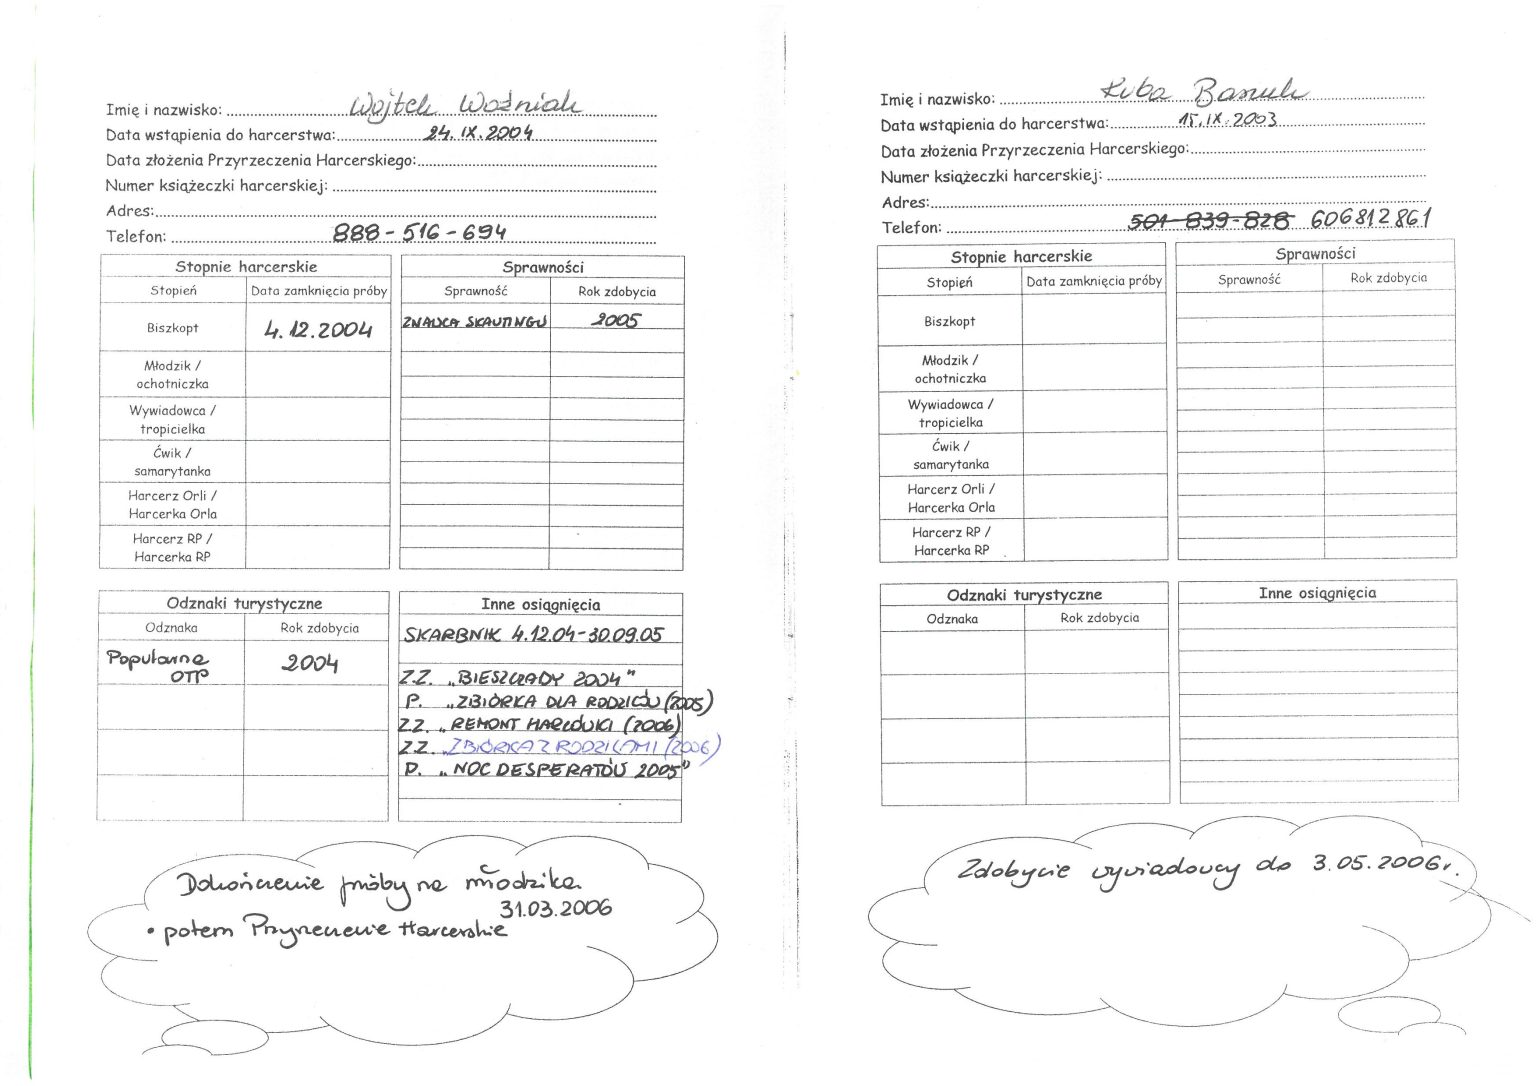 Imię i nazwisko: Wojtek Woźniak
Data wstąpienia do harcerstwa: 24.IX.2004
Data złożenia Przyrzeczenia Harcerskiego:
Numer książeczki harcerskiej:
Adres:
Telefon: 888-516-694
Stopnie harcerskie
Stopień Data zamknięcia próby
Biszkopt 4.12.2004
Młodzik /
ochotniczka
Wywiadowca /
tropicielka
Ćwik /
samarytanka
Harcerz Orli /
Harcerka Orla
Harcerz RP /
Harcerka RP
Sprawności
Sprawność Rok zdobycia
ZNAWCA SKAUTINGU 2005
Odznaki turystyczne
Odznaka Rok zdobycia
Popularna 2004
OTP
Inne osiągnięcia
SKARBNIK 4.12.04-30.09.05
Z.Z. „BIESZCZADY 2004"
P. „ZBIÓRKA DLA RODZICÓW (2005)
Z.Z. „REMONT HARCÓWKI (2006)
Z.Z. „ZBIÓRKA Z RODZICAMI (2006)
P. „NOC DESPERATÓW 2005"
Dokończenie próby na młodzika
31.03.2006
• potem Przyrzeczenie Harcerskie
Imię i nazwisko: Kuba
Data wstąpienia do harcerstwa: 15.IX.2003
Data złożenia Przyrzeczenia Harcerskiego:
Numer książeczki harcerskiej:
Adres:
Telefon: 501-839-828 606812861
Stopnie harcerskie
Stopień Data zamknięcia próby
Biszkopt
Młodzik /
ochotniczka
Wywiadowca /
tropicielka
Ćwik /
samarytanka
Harcerz Orli /
Harcerka Orla
Harcerz RP /
Harcerka RP
Sprawności
Sprawność Rok zdobycia
Odznaki turystyczne
Odznaka Rok zdobycia
Inne osiągnięcia
Zdobycie wywiadowcy do 3.05.2006r.